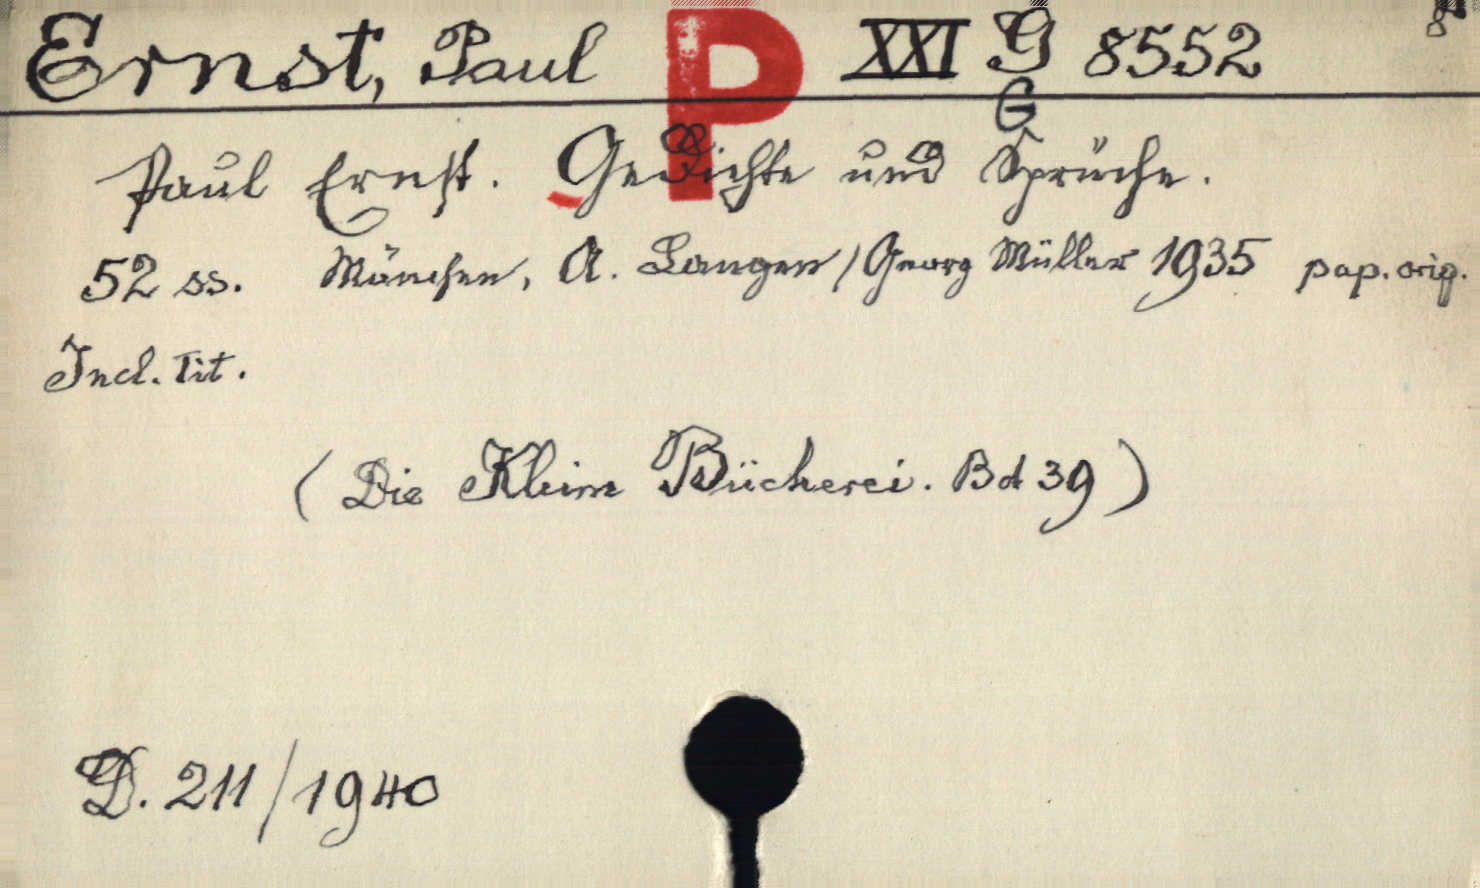 Ernst, Paul P XXI G 8552 8°
G
Paul Ernst. Gedichte und Sprüche.
52 ss. München, A. Langen / Georg Müller 1935 pap. orig.
Incl. Tit.
( Die Kleine Bücherei. Bd 39 )
D. 211 / 1940